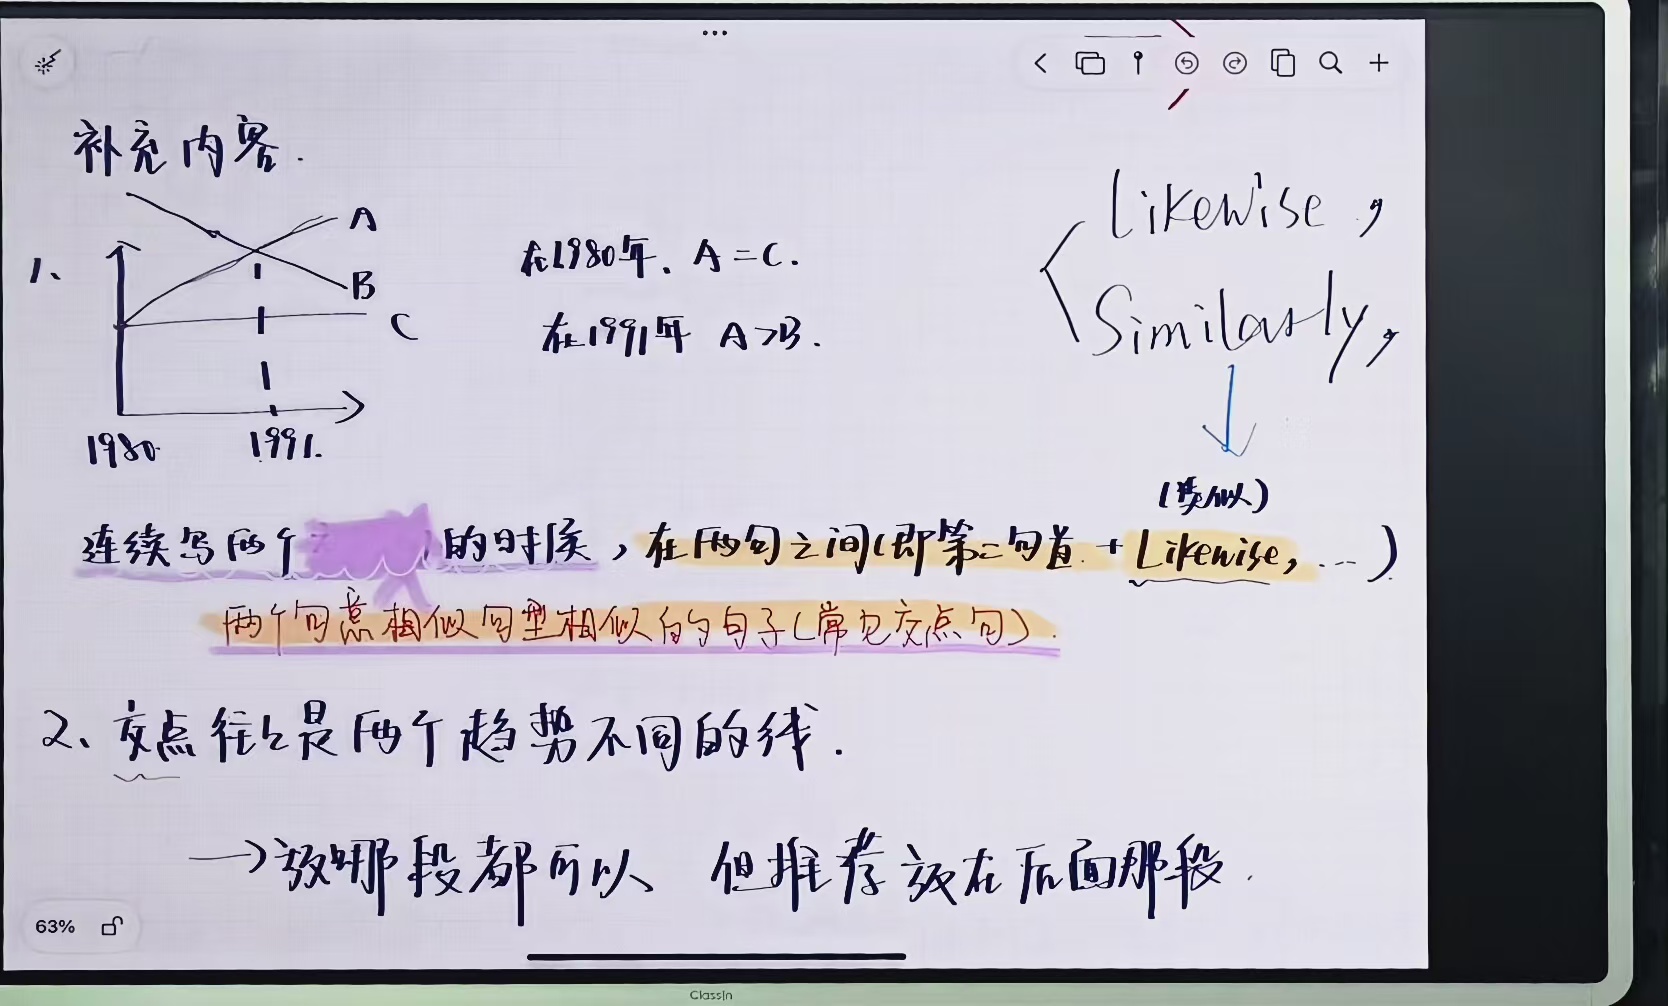 补充内容.
1、
A
B
C
1980
1991.
在1980年、A=C.
在1991年 A>B.
Likewise,
Similarly,
(类似)
连续写两个 的时候,在两句之间(即第二句首.+Likewise, ...)
两个句意相似句型相似的句子(常见交点句).
2、交点往往是两个趋势不同的线.
→放哪段都可以 但推荐放在后面那段.
63%
ClassIn